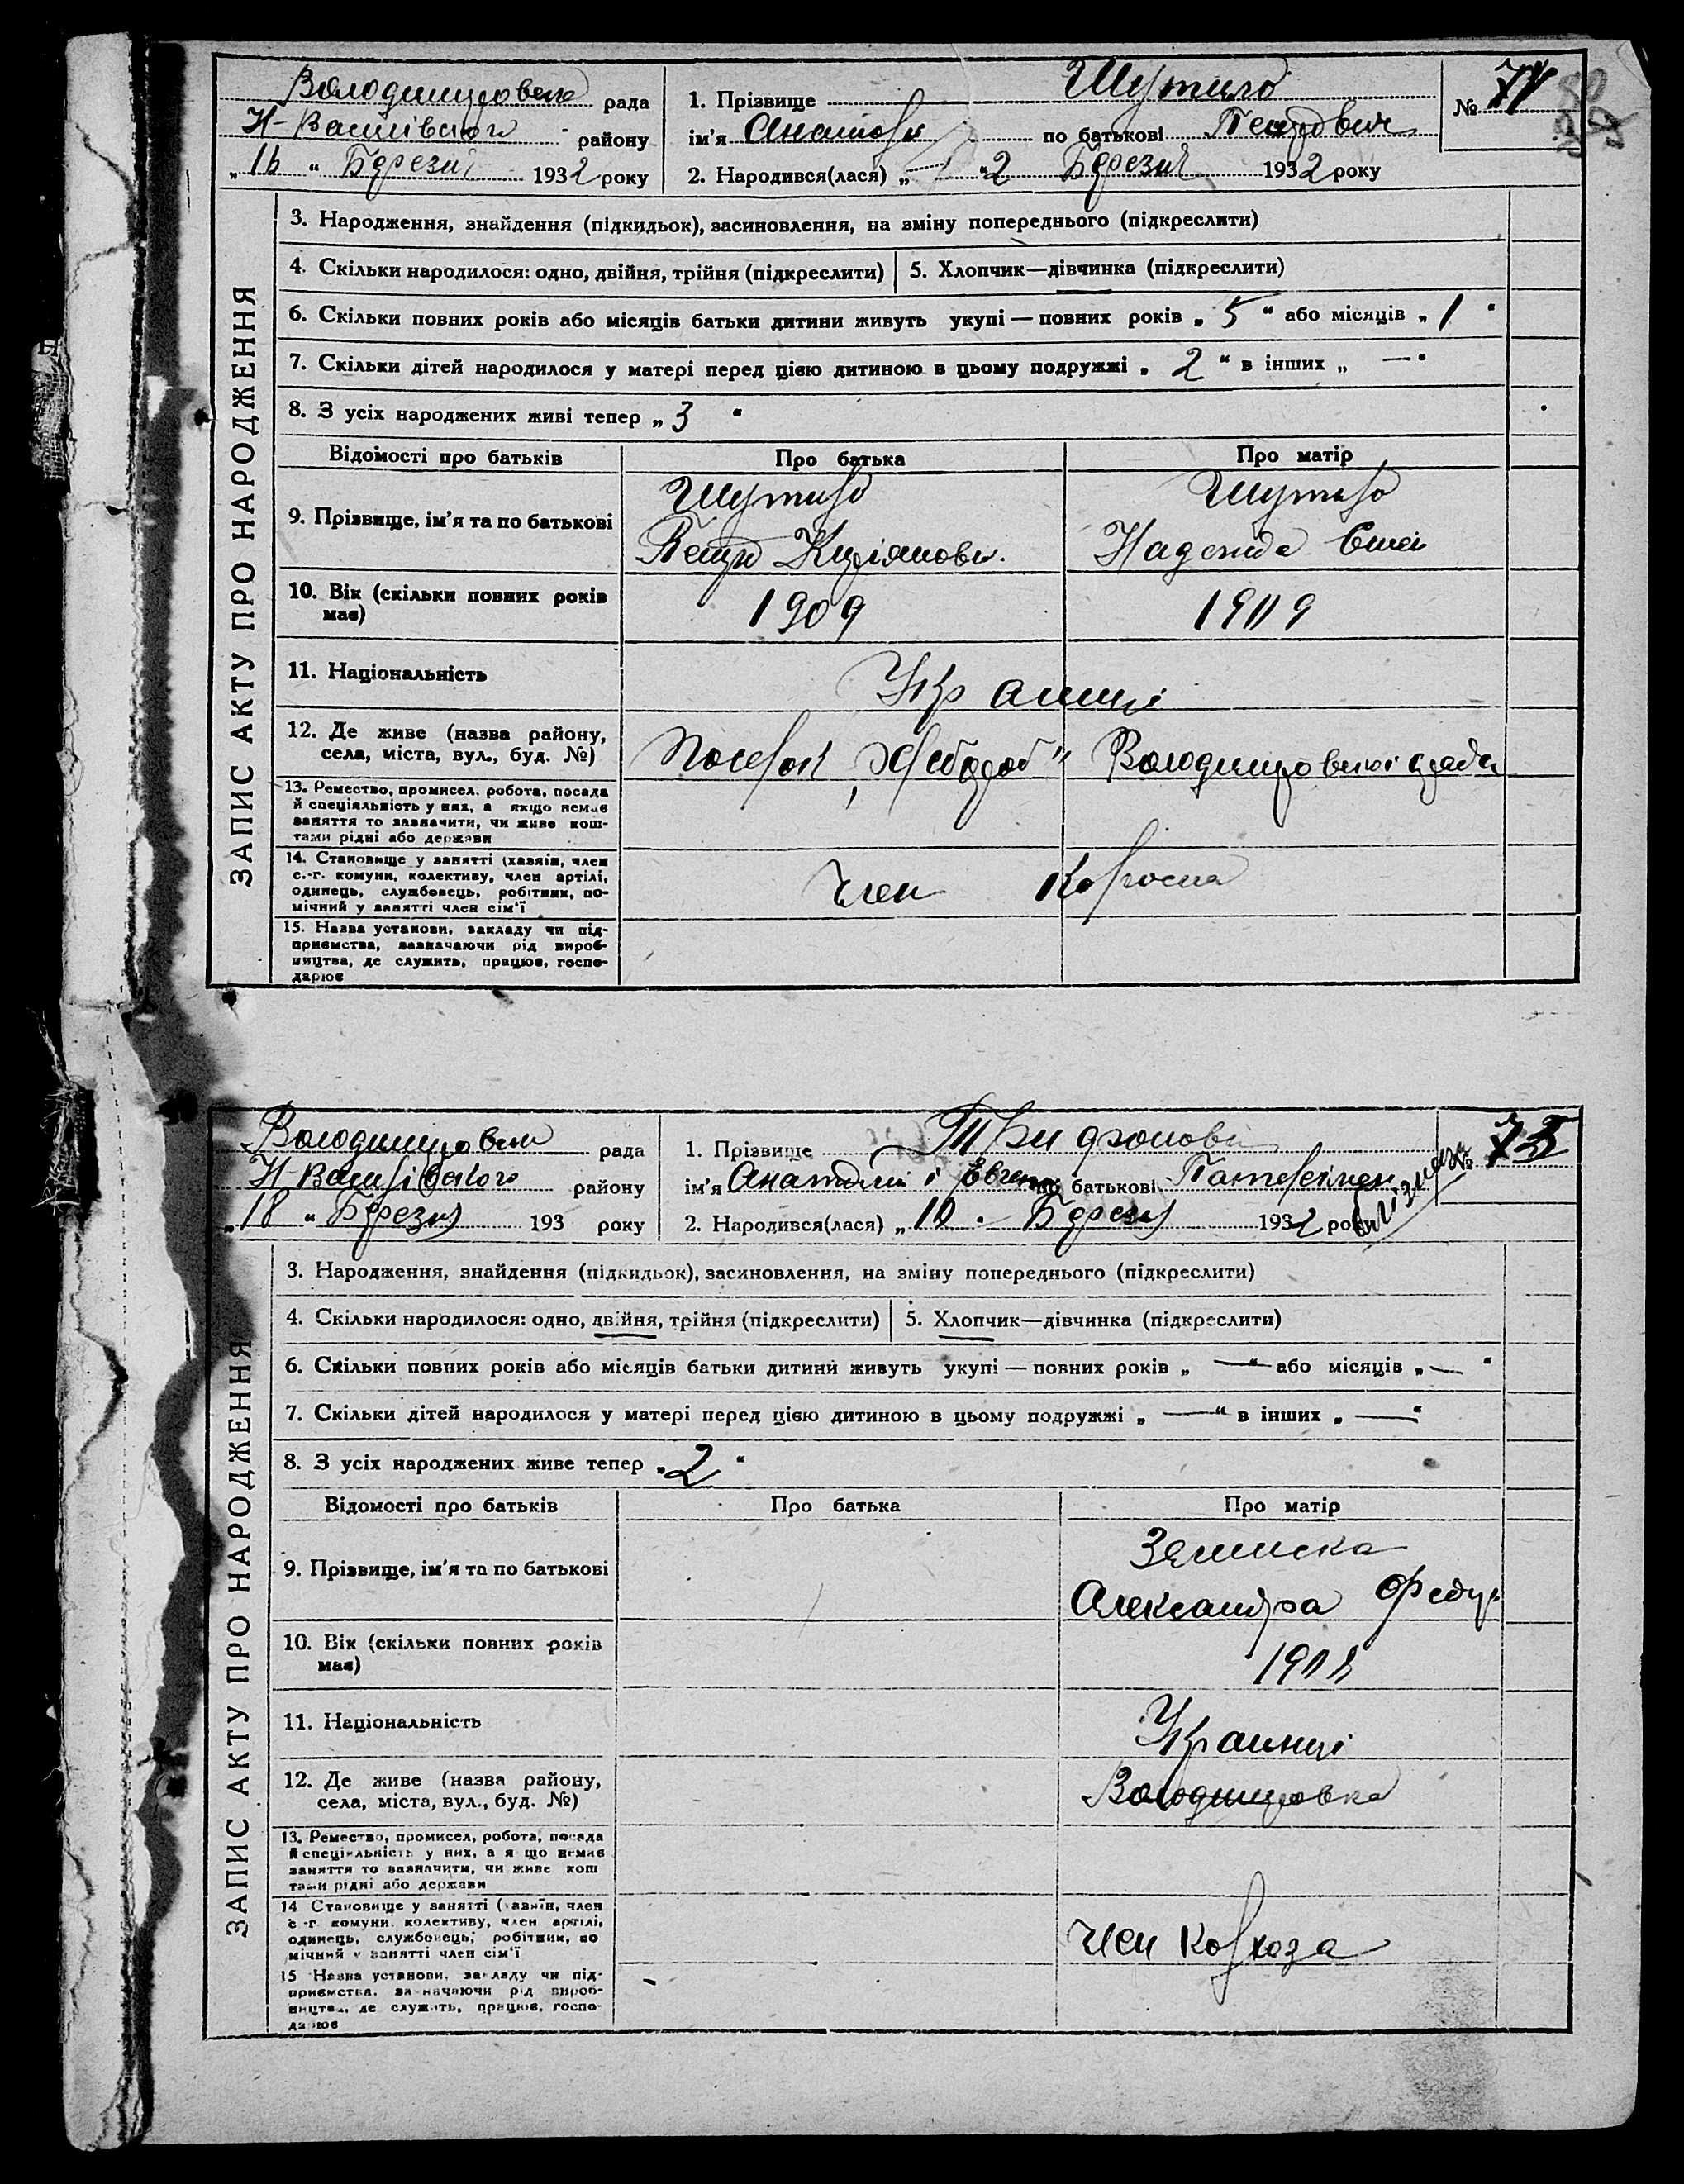 Володимировська рада
Н-Василівського району
„16 “ Березня 1932 року
1. Прізвище Шутило
ім'я Анатолій по батькові Петрович
2. Народився(лася) „ “ 2 Березня 1932 року
№ 71
ЗАПИС АКТУ ПРО НАРОДЖЕННЯ
3. Народження, знайдення (підкидьок), засиновлення, на зміну попереднього (підкреслити)
4. Скільки народилося: одно, двійня, трійня (підкреслити) 5. Хлопчик—дівчинка (підкреслити)
6. Скільки повних років або місяців батьки дитини живуть укупі — повних років „ 5 “ або місяців „ 1 “
7. Скільки дітей народилося у матері перед цією дитиною в цьому подружжі „ 2 “ в інших „ — “
8. З усіх народжених живі тепер „ 3 “
Відомості про батьків Про батька Про матір
9. Прізвище, ім'я та по батькові
Шутило Шутило
Петро Надежда
10. Вік (скільки повних років має)
1909 1909
11. Національність
Украинці
12. Де живе (назва району, села, міста, вул., буд. №)
Поселок „Хлебороб“ Володимировської ради
13. Ремество, промисел, робота, посада й спеціяльність у них, а якщо немає заняття то зазначити, чи живе коштами рідні або держави
14. Становище у занятті (хазяїн, член с.-г. комуни, колективу, член артілі, одинець, службовець, робітник, помічний у занятті член сім'ї
Член Колгоспа
15. Назва установи, закладу чи підприємства, зазначаючи рід виробництва, де служить, працює, господарює
Володимировська рада
Н Василівського району
„18 “ Березня 193 року
1. Прізвище
ім'я Анатолій і Евгеній по батькові
2. Народився(лася) „ 10 . Березня 1932 року
№ 73
Близнята
ЗАПИС АКТУ ПРО НАРОДЖЕННЯ
3. Народження, знайдення (підкидьок), засиновлення, на зміну попереднього (підкреслити)
4. Скільки народилося: одно, двійня, трійня (підкреслити) 5. Хлопчик—дівчинка (підкреслити)
6. Скільки повних років або місяців батьки дитини живуть укупі — повних років „ — “ або місяців „ — “
7. Скільки дітей народилося у матері перед цією дитиною в цьому подружжі „ — “ в інших „ — “
8. З усіх народжених живе тепер „ 2 “
Відомості про батьків Про батька Про матір
9. Прізвище, ім'я та по батькові
Александра Федор.
10. Вік (скільки повних років має)
11. Національність
Украинці
12. Де живе (назва району, села, міста, вул., буд. №)
Володимировка
13. Ремество, промисел, робота, посада й спеціяльність у них, а якщо немає заняття то зазначити, чи живе коштами рідні або держави
14 Становище у занятті (хазяїн, член с-г комуни, колективу, член артілі, одинець, службовець, робітник, помічний у занятті член сім'ї
член Колхоза
15 Назва установи, закладу чи підприємства, зазначаючи рід виробництва, де служить, працює, господарює